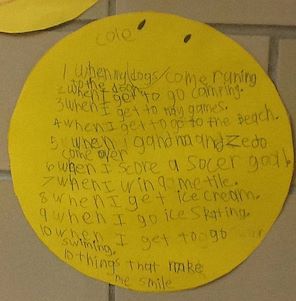 cole
1 when my dogs come runing
to the door.
2 when I get to go camping.
3 when I get to play games.
4 when I get to go to the beach.
5 when i gandma and zedo
come over
6 when I score a socer goal
7 when I win game tile.
8 when I get ice cream.
9 when I go ice skating.
10 when I get to go
swiming.
10 things that make
me smile